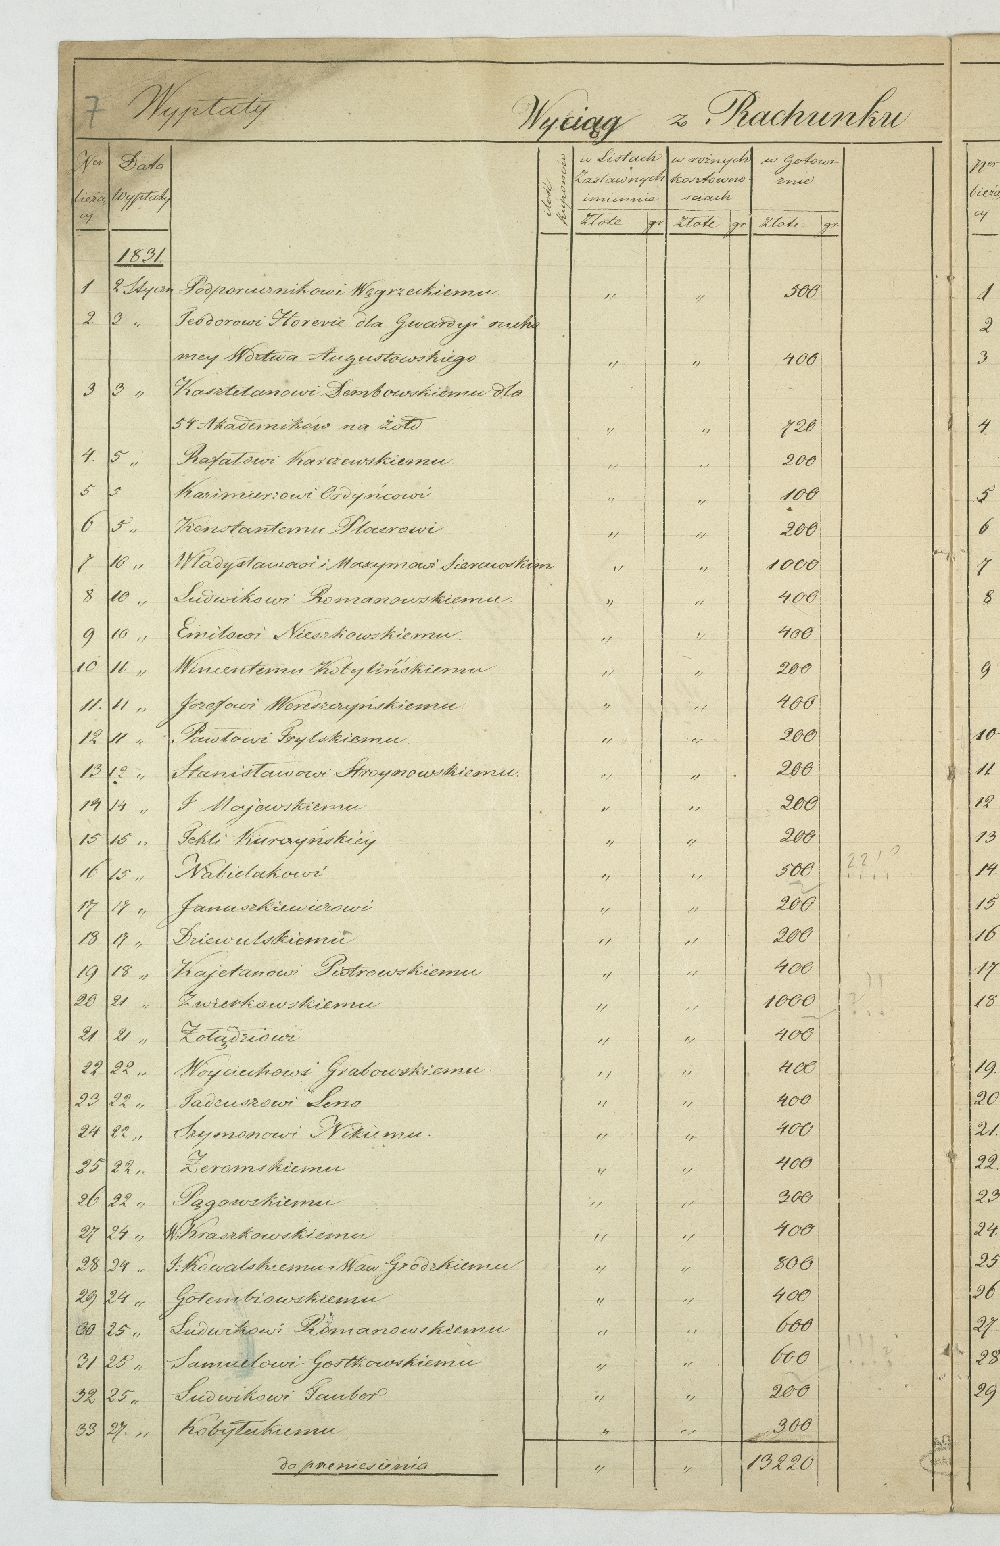 7 Wypłaty Wyciąg z Rachunku
Ner bieżący Data Wypłaty kuponów w Listach Zastawnych immunie w rożnych kosztownościach w Gotowiźnie
Złote gr Złote gr Złote gr
1831.
1 2 Styczn Podporucznikowi Węgrzeckiemu " " 500
2 3 " Teodorowi dla Gwardyi rucho
mey Wdztwa Augustowskiego " " 400
3 3 " Kasztelanowi Dembowskiemu dla
54 Akademików na żołd " " 720
4. 5 " Rafałowi Karczewskiemu " " 200
5 5 Kazimierzowi Ordyńcowi " 100
6 5 " Konstantemu Platerowi " " 200
7 10 " Władysławowi i Maxymowi " " 1000
8 10 " Ludwikowi Romanowskiemu. " " 400
9 10 " Emilowi Nieszkowskiemu. " " 400
10 11 " Wincentemu Kotylińskiemu " " 200
11. 11 " Jozefowi Wereszczyńskiemu " " 400
12 11 " Pawłowi Trylskiemu. " " 200
13 12 " Stanisławowi Stroynowskiemu. " " 200
14 14 " J Majewskiemu " " 200
15 15 " Tekli Kurzyńskiéy " " 200
16 15 " Nabielakowi " " 500
17 17 " Januszkiewiczowi " " 200
18 17 " Dziewulskiemu " " 200
19 18 " Kajetanowi Piotrowskiemu " " 400
20 21 " Zwierkowskiemu " " 1000
21 21 " Żołądziowi " " 400
22 22 " Woyciechowi Grabowskiemu " " 400
23 22 " Tadeuszowi Leno " " 400
24 22 " Szymonowi " " 400
25 22 " Żeromskiemu " " 400
26 22 " Pągowskiemu " " 300
27 24 " W. Kraszkowskiemu " " 400
28 24 " J. Kowalskiemu i Waw Grodzkiemu " " 800
29 24 " Gołembiowskiemu " " 400
30 25 " Ludwikowi Romanowskiemu " " 600
31 25 " Samuelowi Gostkowskiemu " " 600
32 25 " Ludwikowi Taubor " " 200
33 27. " Kobyłeckiemu " " 300
do przeniesienia " " 13220
Ner bieżą cy
1
2
3
4.
5
6
7
8
9
10
11
12
13
14
15
16
17
18
19.
20
21.
22.
23
24.
25
26
27.
28
29